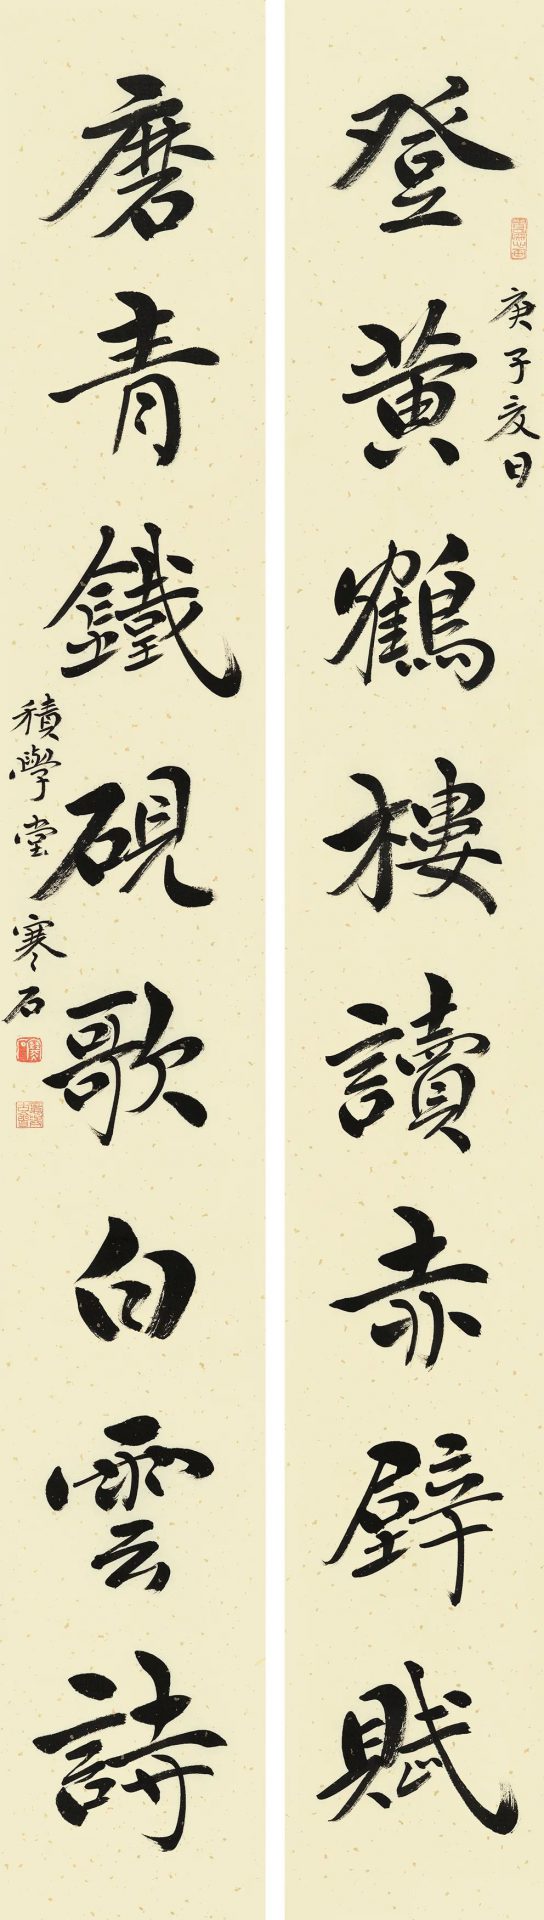 登黄鶴樓讀赤壁賦
庚子夏日
磨青鐵硯歌白雲詩
積學堂寒石